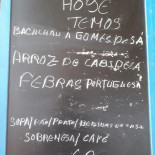 HOJE
TEMOS
BACALHAU A GOMES DE SÁ
ARROZ DE CABIDELA
FEBRAS PORTUGUESA
SOPA/PÃO/PRATO/
SOBREMESA/CAFÉ